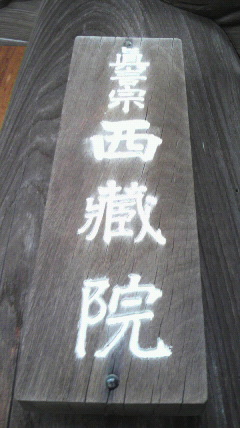 眞言宗西藏院